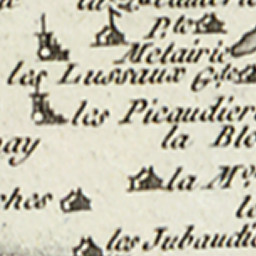 P.te
Metairie
les Lussaux G.de
les Picaudier
la Ble
nay
la M.
ches
le
les Jubaudie